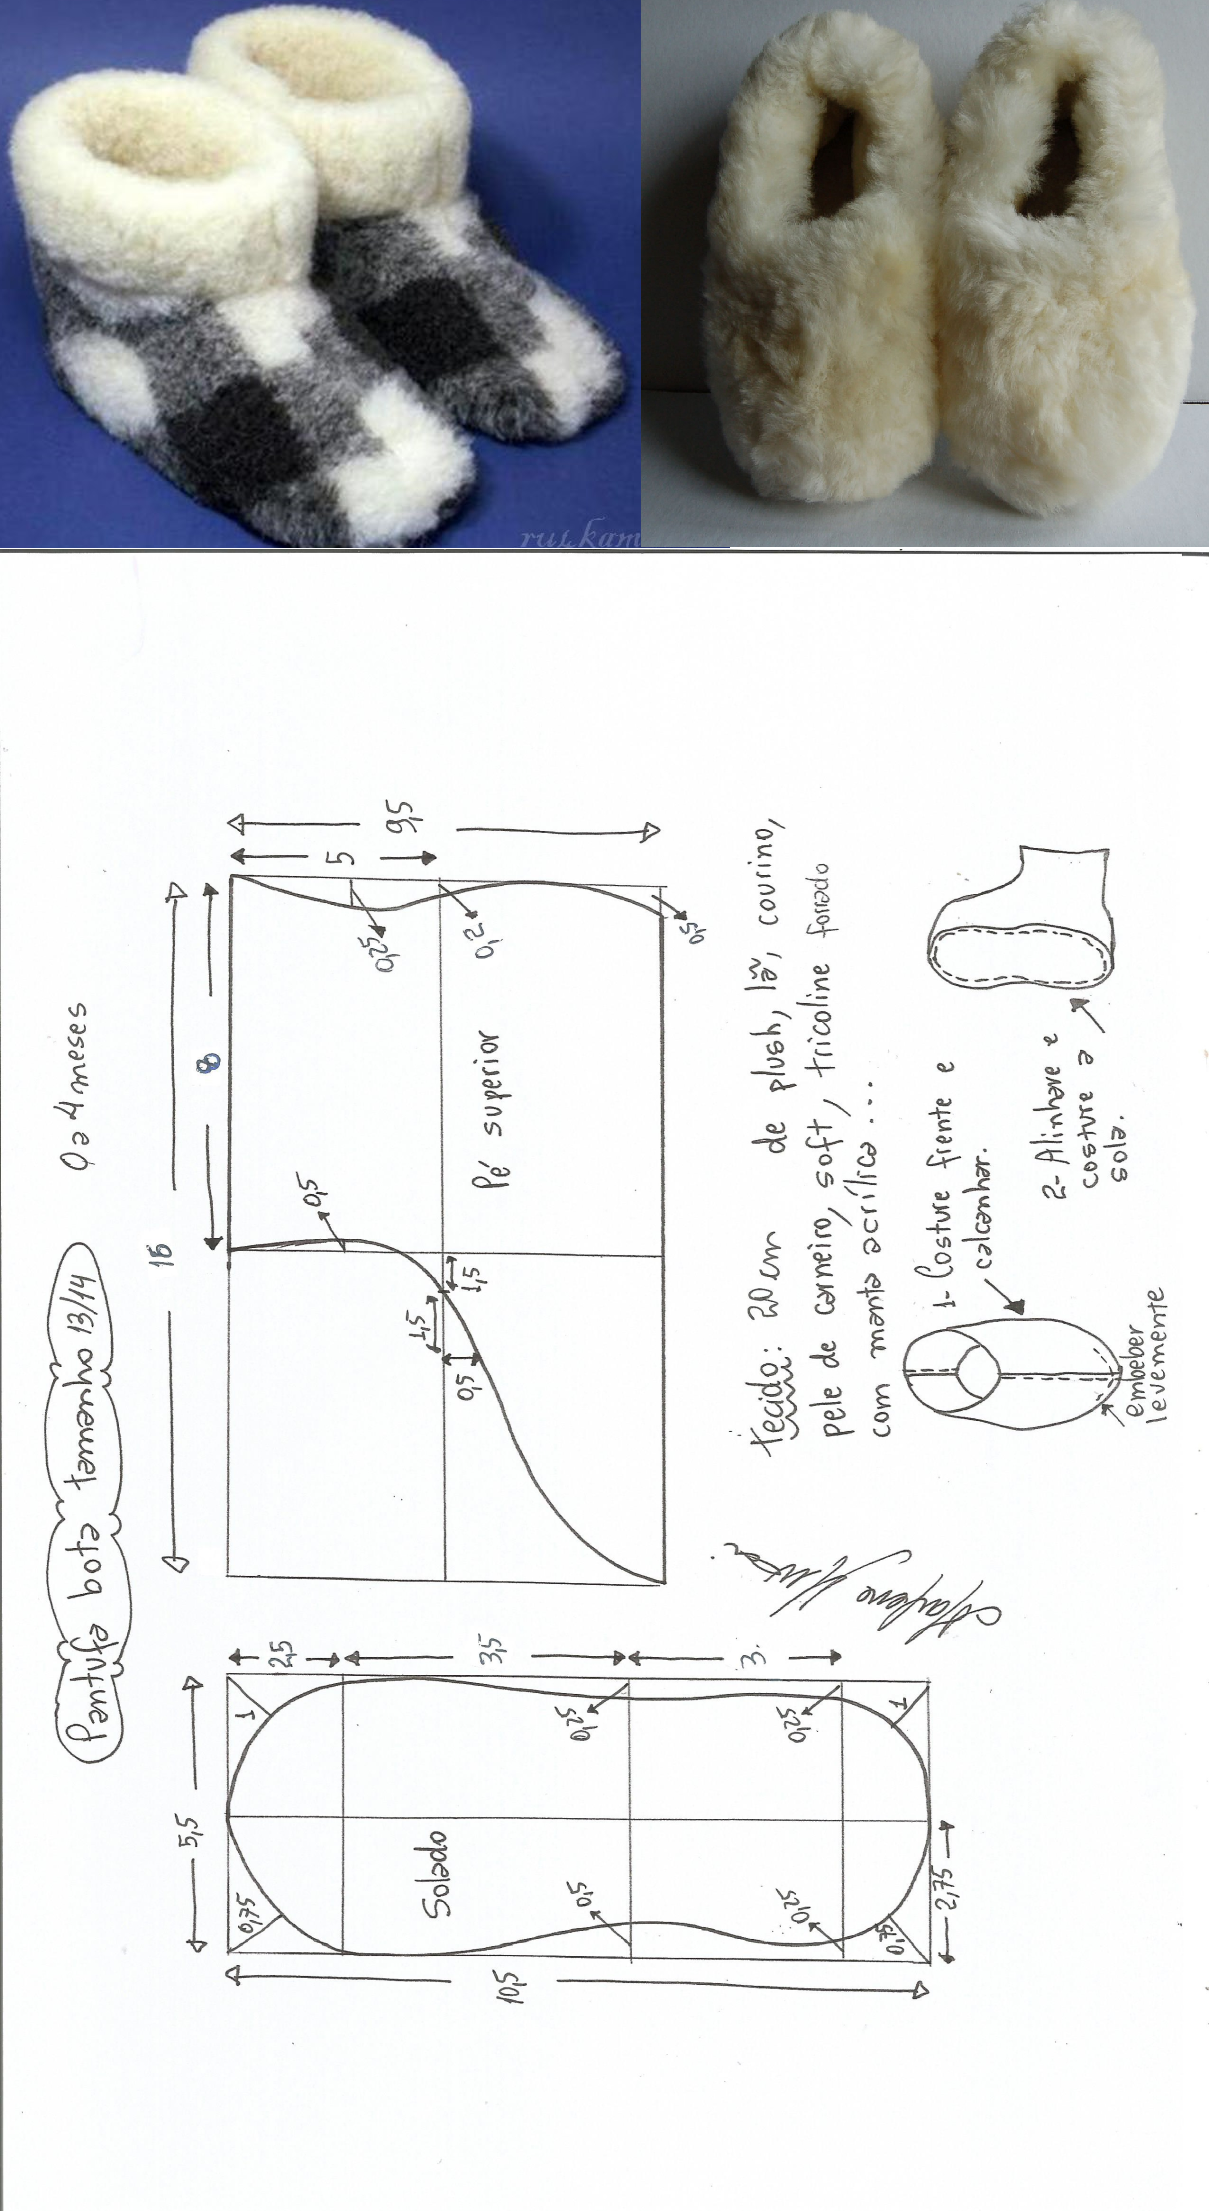 rutkam
Pantufa bota tamanho 13/14
0 a 4 meses
16
8
9,5
5
0,25
0,2
0,5
0,5
1,5
1,5
0,5
Pé superior
5,5
10,5
2,5
3,5
3
1
1
0,25
0,25
0,5
0,25
0,75
0,75
2,75
Solado
tecido: 20cm de plush, lã, courino,
pele de carneiro, soft, tricoline forrado
com manta acrílica...
1- Costure frente e
calcanhar.
embeber
levemente
2- Alinhave e
costure a
sola.